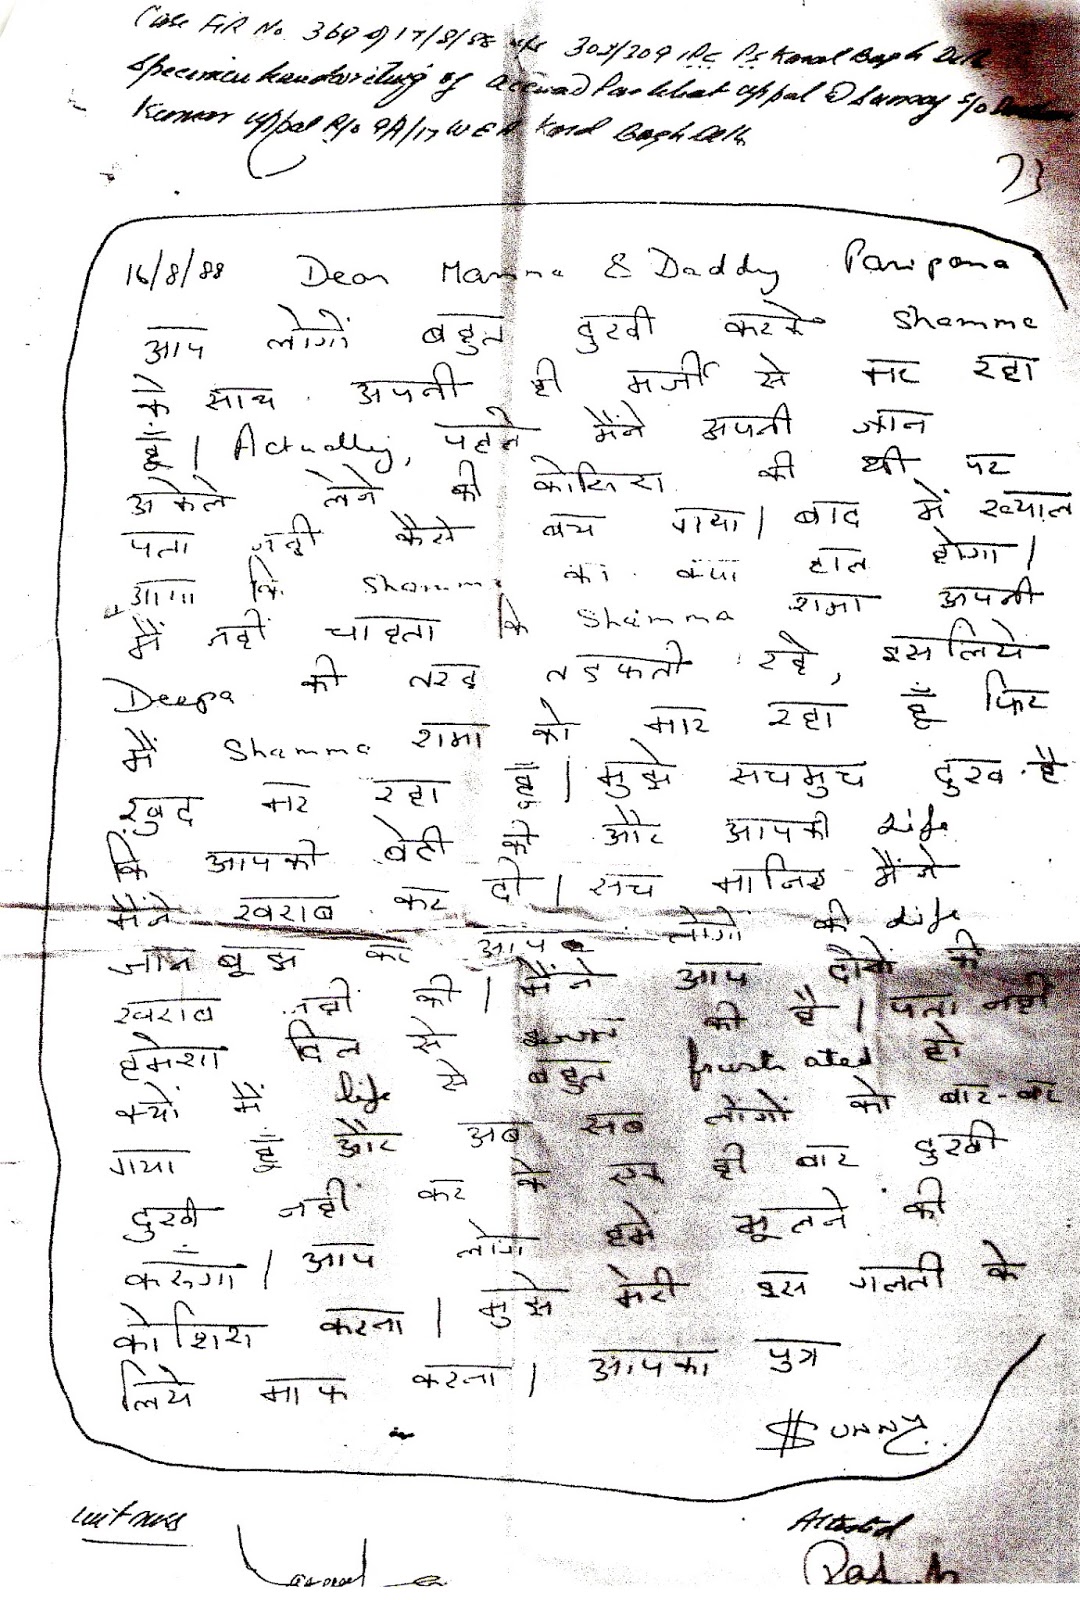 Case FIR No. 369 of 17/8/88 u/s 302/309 IPC PS Karol Bagh Delhi
Specimen handwriting of accused Parbhat Uppal @ Sunny S/o
Kumar Uppal R/o 9A/17 W E A Karol Bagh Delhi
73
16/8/88 Dear Mamma & Daddy Paripana
आप लोगों बहुत दुखी करके Shamma
के साथ अपनी ही मर्जी से मर रहा
हूँ। Actually, पहले मैंने अपनी जान
अकेले लेने की कोसिश की थी पर
पता नहीं कैसे बच गया। बाद में ख्याल
आया कि Shamma का क्या हाल होगा।
मैं नहीं चाहता कि Shamma शमा अपनी
Deepa की तरह तडफती रहे, इसलिये
मैं Shamma शमा को मार रहा हूँ फिर
खुद मर रहा हूँ। मुझे सचमुच दुख है
कि आपकी बेटी की और आपकी life
मैंने खराब कर दी। सच मानिए मैंने
जान बूझ कर आप लोगो की life
खराब नहीं की। मैंने आप दोनो की
हमेशा दिल से इज्जत की है। पता नहीं
क्यों मैं life से बहुत frustrated हो
गया हूँ और अब सब लोगों को बार-बार
दुखी नहीं कर के एक ही बार दुखी
करुंगा। आप लोग हमें भूलने की
कोशिश करना। मुझे मेरी इस गलती के
लिये माफ करना। आपका पुत्र
Sunny
Witness Attested